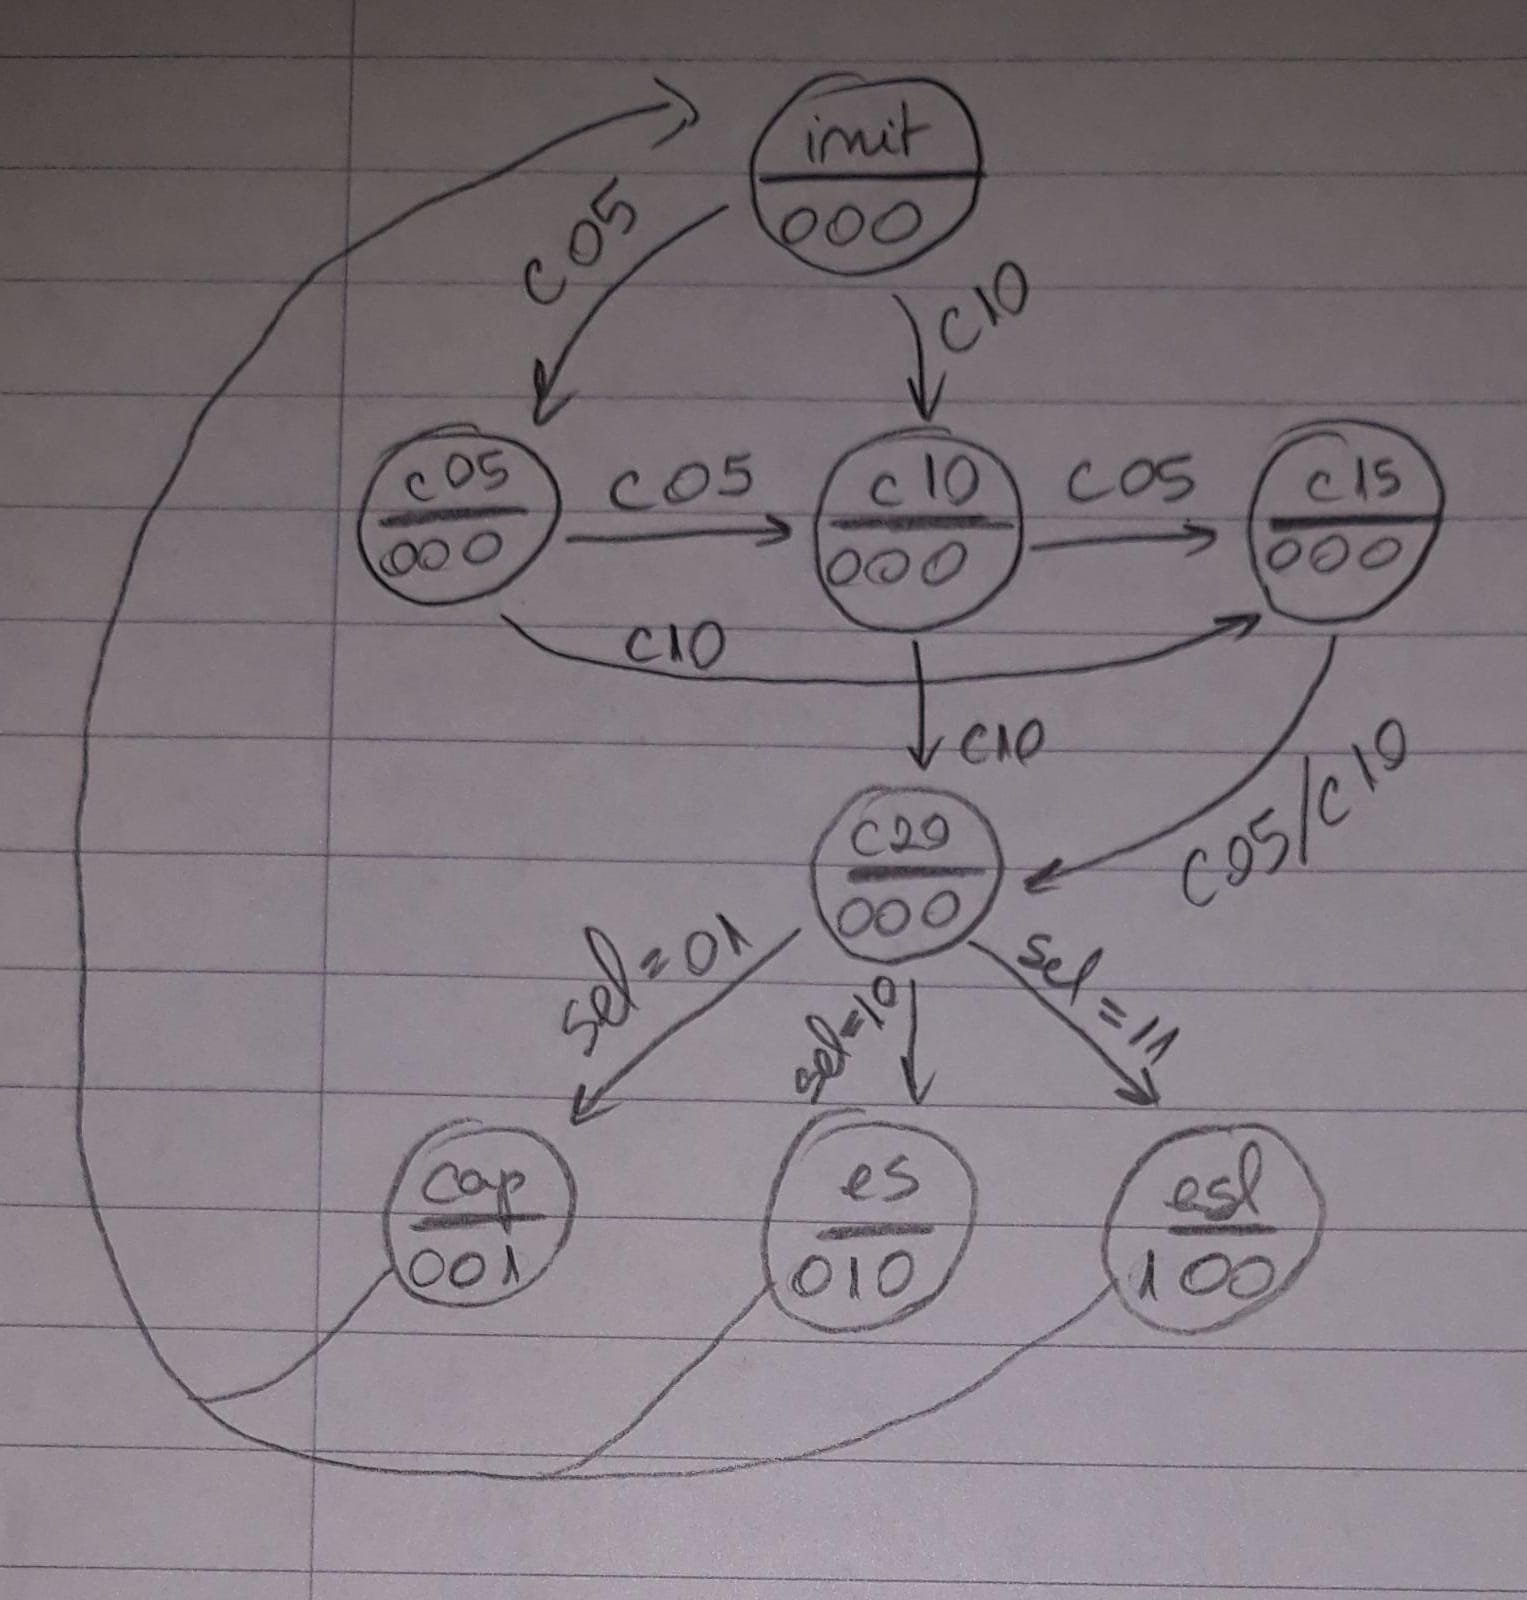 init
000
C05
C10
c05
000
C05
c10
000
C05
c15
000
C10
C10
C05/C10
C20
000
sel=01
sel=10
sel=11
cap
001
es
010
esl
100